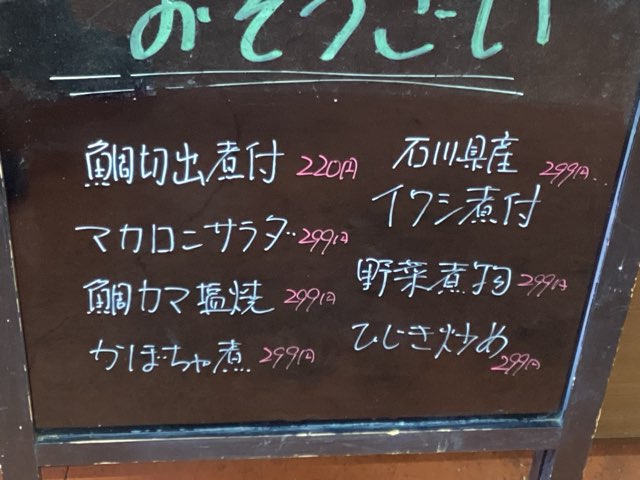 おそうざい
鯛切出煮付 220円
マカロニサラダ 299円
鯛カマ塩焼 299円
かぼちゃ煮 299円
石川県産 299円
イワシ煮付
野菜煮物 299円
ひじき炒め
299円